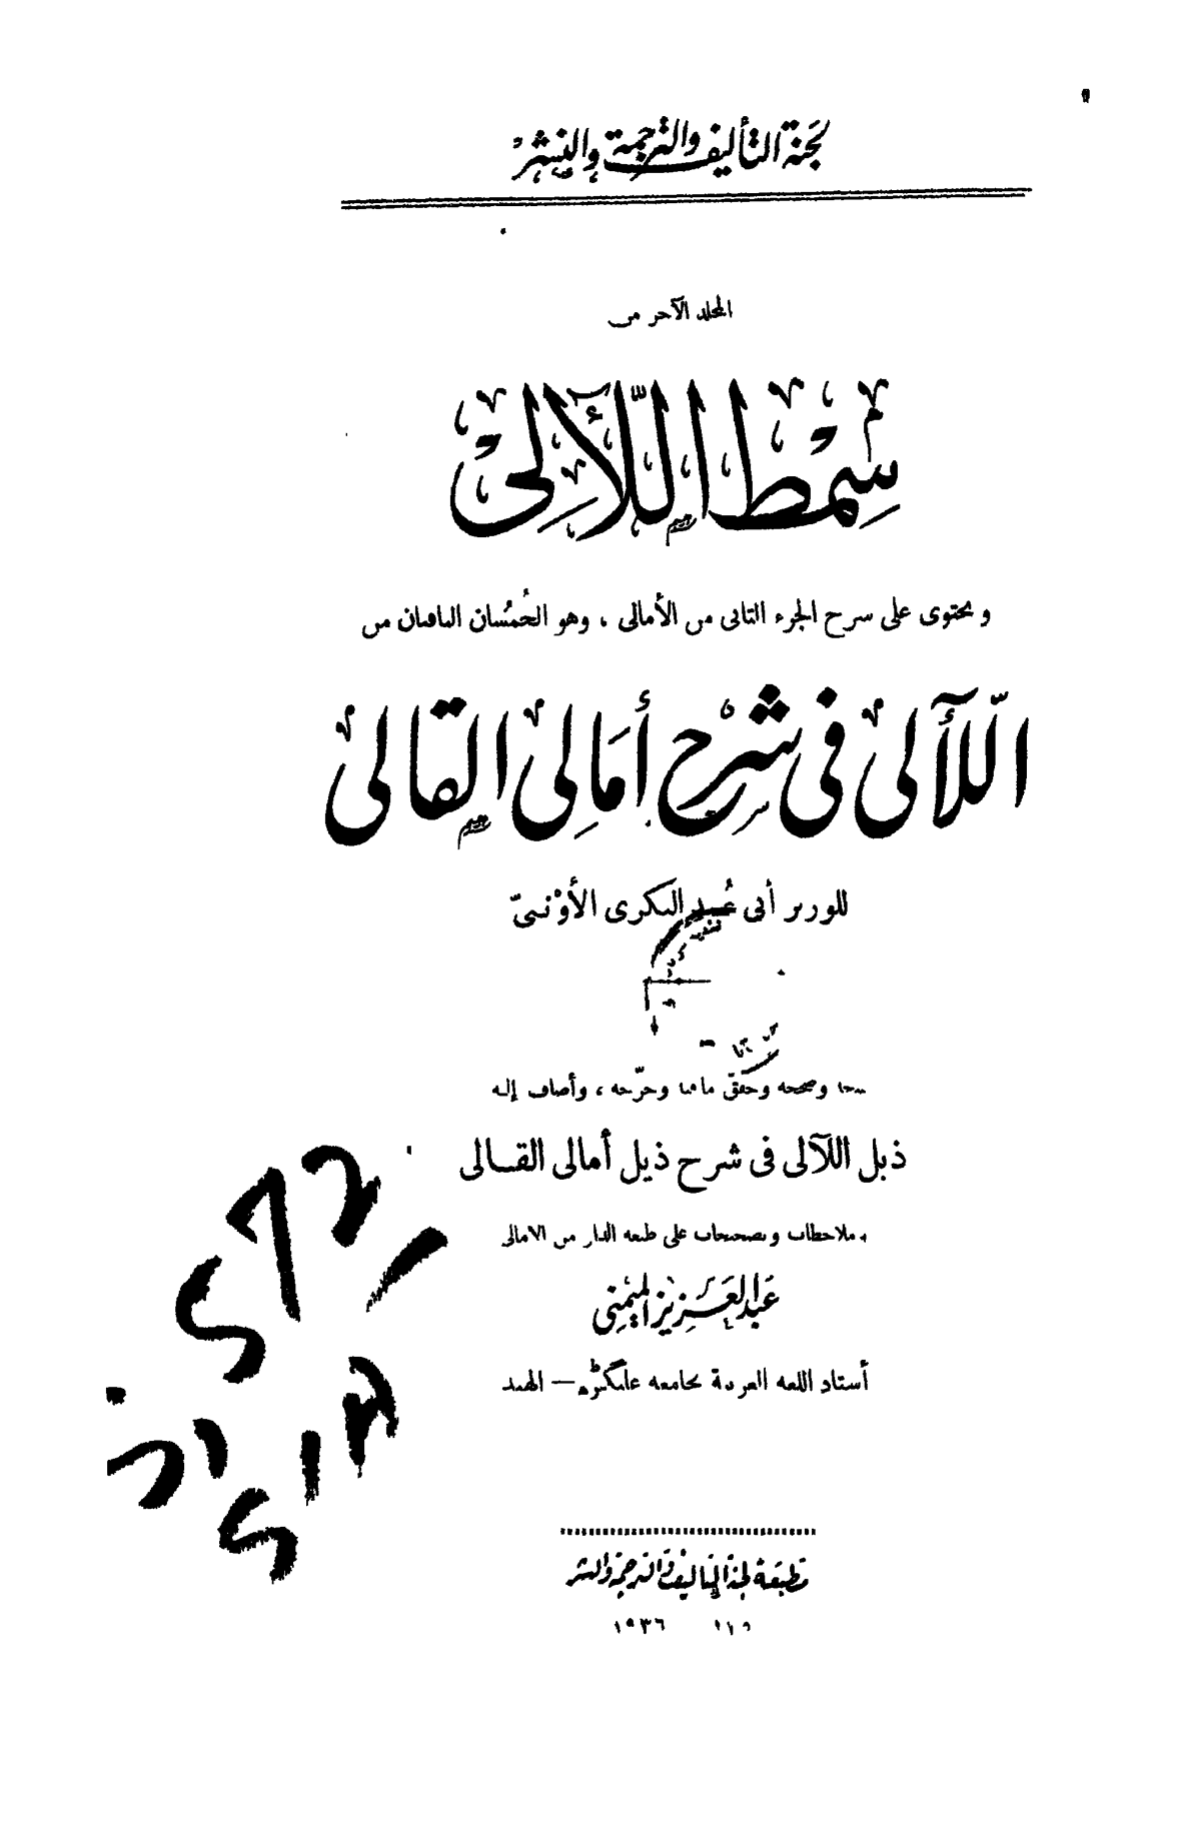 لجنة التأليف والترجمة والنشر
المجلد الآخر من
سِمْط اللّآلِى
ويحتوى على شرح الجزء الثانى من الأمالى ، وهو الخُمْسان الباقيان من
اللّآلى فى شرح أمَالِى القالى
للوزير أبى عُبيد البكرى الأوْنبىّ
نسخه وصححه وحقّق ما فيه وخرّجه ، وأضاف إليه
ذيل اللآلى فى شرح ذيل أمالى القالى
وملاحظات وتصحيحات على طبعة الدار من الأمالى
عبد العزيز الميمنى
أستاذ اللغة العربية بجامعة عليكره — الهند
مطبعة لجنة التأليف والترجمة والنشر
١٩٣٦